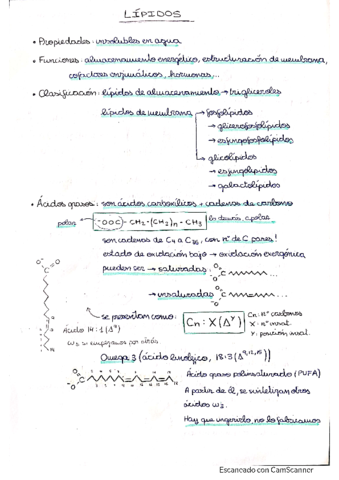 LÍPIDOS
• Propiedades: insolubles en agua
• Funciones: almacenamiento energético, estructuración de membrana,
cofactores enzimáticos, hormonas,...
• Clasificación: lípidos de almacenamiento → triglicéridos
lípidos de membrana → fosfolípidos
→ glicerofosfolípidos
→ esfingofosfolípidos
→ glicolípidos
→ esfingolípidos
→ galactolípidos
• Ácidos grasos: son ácidos carboxílicos + cadenas de carbono
polar -OOC-CH2-(CH2)n-CH3 lo demás apolar
son cadenas de C4 a C36, con nº de C pares!
estado de oxidación bajo → oxidación exergónica
pueden ser → saturadas:
→ insaturadas
se presentan como: Cn: X(Δʸ) Cn: nº carbonos
X: nº insat.
Y: posición insat.
Ácido 14:1(Δ⁹)
ω3 = empezamos por atrás
Omega 3 (ácido linolénico, 18:3(Δ⁹,¹²,¹⁵))
Ácido graso poliinsaturado (PUFA)
A partir de él, se sintetizan otros
ácidos ω3.
Hay que ingerirlo, no lo fabricamos
Escaneado con CamScanner